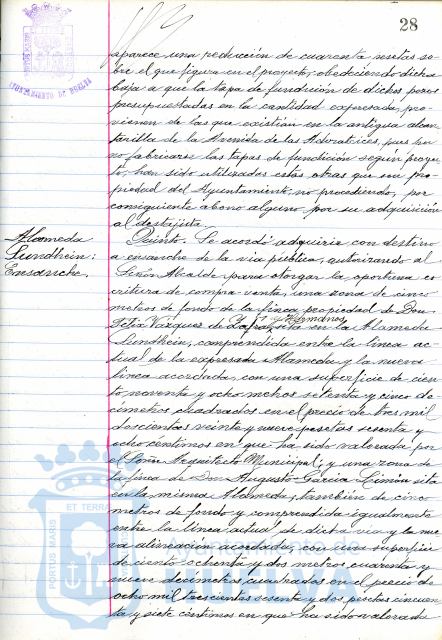 28
AYUNTAMIENTO DE HUELVA
aparece una reducción de cuarenta pesetas so-
bre el que figura en el proyecto, obedeciendo dicha
baja a que la tapa de fundición de dichos pozos
presupuestadas en la cantidad expresada, pro-
vienen de las que existían en la antigua alcan-
tarilla de la Avenida de las Adoratrices, pues por
no fabricarse las tapas de fundición según proyec-
to, han sido utilizadas estas otras que son pro-
piedad del Ayuntamiento, no procediendo, por
consiguiente abono alguno por su adquisición
al destajista.
Alameda
Sundhein:
Ensanche.
Quinto. Se acordó adquirir con destino
a ensanche de la vía pública, autorizando al
Señor Alcalde para otorgar la oportuna es-
critura de compra-venta, una zona de cinco
metros de fondo de la finca propiedad de Don
Félix Vázquez de Zafra y Hermanos, sita en la Alameda
Sundhein, comprendida entre la línea ac-
tual de la expresada Alameda y la nueva
línea acordada, con una superficie de cien-
to noventa y ocho metros setenta y cinco de-
címetros cuadrados en el precio de tres mil
doscientos veinte y nueve pesetas sesenta y
ocho céntimos en que ha sido valorada por
el Señor Arquitecto Municipal; y una zona de
la finca de Don Augusto García Limón sita
en la misma Alameda, también de cinco
metros de fondo y comprendida igualmente
entre la línea actual de dicha vía y la nue-
va alineación acordada, con una superficie
de ciento ochenta y dos metros cuarenta y
nueve decímetros cuadrados en el precio de
ocho mil trescientas sesenta y dos pesetas cincuen-
ta y siete céntimos en que ha sido valorada
PORTUS MARIS ET TERRAE
Ayuntamiento de